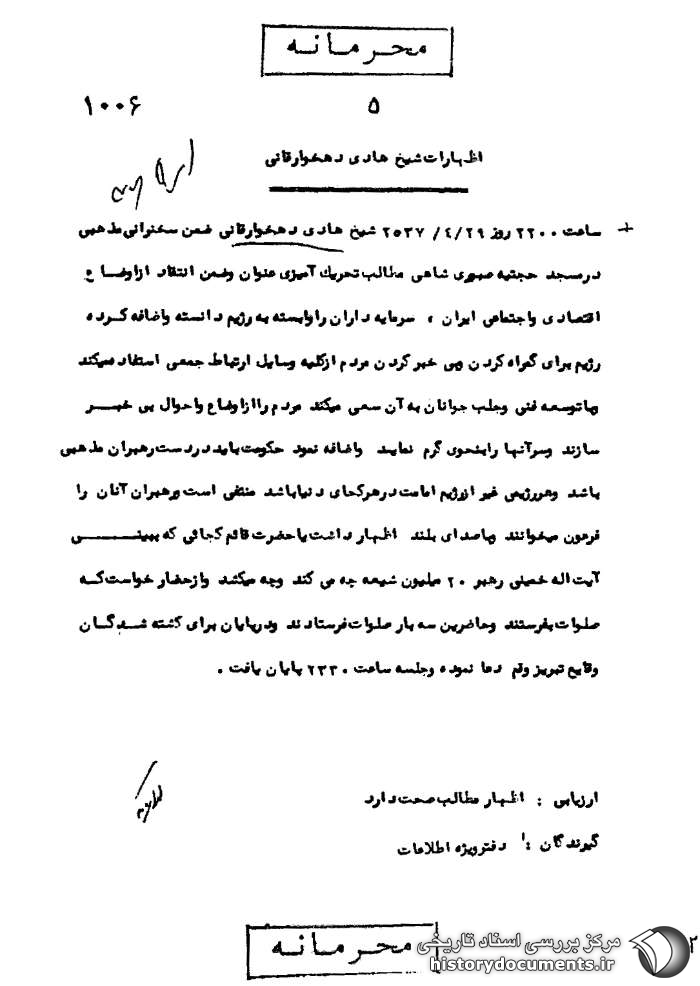 محرمانه
۱۰۰۶ ۵
اظهارات شیخ هادی دهخوارقانی
ساعت ۲۲۰۰ روز ۴/۲۹/ ۲۵۳۷ شیخ هادی دهخوارقانی ضمن سخنرانی مذهبی
در مسجد حجتیه صبوری شاهی مطالب تحریک آمیزی عنوان وضمن انتقاد از اوضاع
اقتصادی واجتماعی ایران ، سرمایه داران را وابسته به رژیم دانسته واضافه کرده
رژیم برای گمراه کردن وبی خبر کردن مردم از کلیه وسایل ارتباط جمعی استفاده میکند
وباتوسعه فنی وجلب جوانان به آن سعی میکند مردم را از اوضاع واحوال بی خبر
سازند وسر آنها را بنحوی گرم نمایند واضافه نمود حکومت باید در دست رهبران مذهبی
باشد وهر رژیمی غیر از رژیم امامت در هرکجای دنیا باشد منتفی است ورهبران آنان را
فرعون میخوانند وباصدای بلند اظهار داشت یاحضرت قائم کجائی که ببینی
آیت اله خمینی رهبر ۲۰ میلیون شیعه چه می کند وچه میکشد واز حضار خواست که
صلوات بفرستند وحاضرین سه بار صلوات فرستادند ودر پایان برای کشته شدگان
وقایع تبریز وقم دعا نموده وجلسه ساعت ۲۳۳۰ پایان یافت .
ارزیابی : اظهار مطالب صحت دارد
گیرندگان : دفتر ویژه اطلاعات
محرمانه
مرکز بررسی اسناد تاریخی
historydocuments.ir
۲